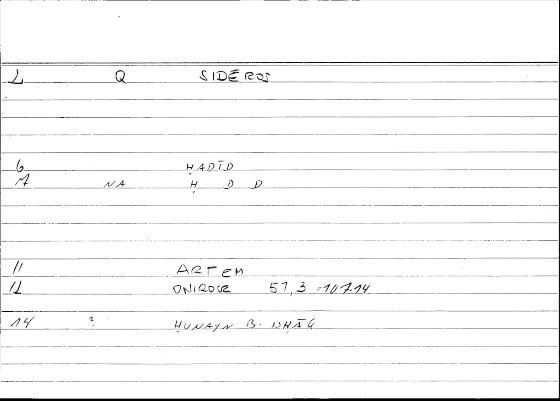 2 Q SIDĒROS
6 ḤADĪD
7 NA Ḥ D D
11 ARTEM
12 ONIROCR 57,3 = 107.14
14 ? ḤUNAYN B. ISḤĀQ